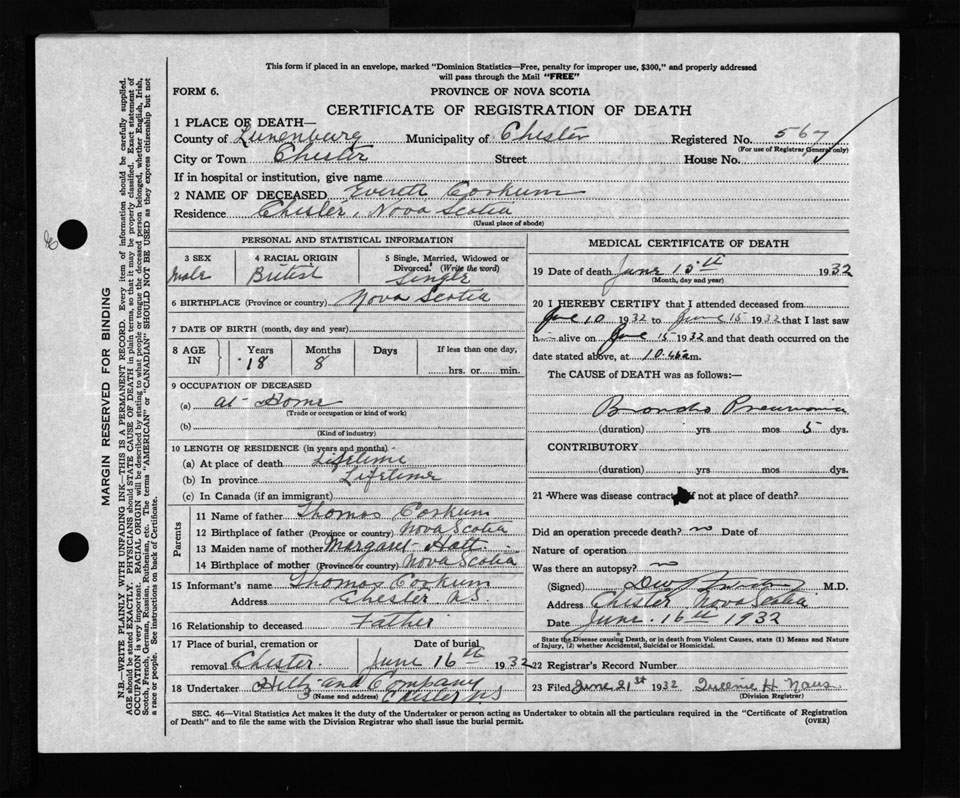 This form if placed in an envelope, marked "Dominion Statistics—Free, penalty for improper use, $300," and properly addressed
will pass through the Mail "FREE"
FORM 6. PROVINCE OF NOVA SCOTIA
CERTIFICATE OF REGISTRATION OF DEATH
1 PLACE OF DEATH—
County of Lunenburg Municipality of Chester Registered No. 567
(For use of Registrar General only)
City or Town Chester Street House No.
If in hospital or institution, give name
2 NAME OF DECEASED Everett Corkum
Residence Chester, Nova Scotia
(Usual place of abode)
PERSONAL AND STATISTICAL INFORMATION
3 SEX 4 RACIAL ORIGIN 5 Single, Married, Widowed or
Divorced. (Write the word)
Male British Single
6 BIRTHPLACE (Province or country) Nova Scotia
7 DATE OF BIRTH (month, day and year)
8 AGE IN Years Months Days If less than one day,
18 8 hrs. or min.
9 OCCUPATION OF DECEASED
(a) at Home
(Trade or occupation or kind of work)
(b)
(Kind of industry)
10 LENGTH OF RESIDENCE (in years and months)
(a) At place of death Lifetime
(b) In province Lifetime
(c) In Canada (if an immigrant)
Parents
11 Name of father Thomas Corkum
12 Birthplace of father (Province or country) Nova Scotia
13 Maiden name of mother Margaret Hatt
14 Birthplace of mother (Province or country) Nova Scotia
15 Informant's name Thomas Corkum
Address Chester N.S
16 Relationship to deceased Father
17 Place of burial, cremation or Date of burial
removal Chester. June 16th 1932
18 Undertaker and Company
(Name and address) Chester N.S
MEDICAL CERTIFICATE OF DEATH
19 Date of death June 15th 1932
(Month, day and year)
20 I HEREBY CERTIFY that I attended deceased from
June 10 1932 to June 15 1932 that I last saw
h alive on June 15 1932 and that death occurred on the
date stated above, at 10.45 a.m.
The CAUSE of DEATH was as follows:—
Broncho Pneumonia
(duration) yrs mos 5 dys.
CONTRIBUTORY
(duration) yrs mos dys.
21 Where was disease contracted if not at place of death?
Did an operation precede death? no Date of
Nature of operation
Was there an autopsy? no
(Signed) M.D.
Address Chester Nova Scotia
Date June. 16th 1932
State the Disease causing Death, or in death from Violent Causes, state (1) Means and Nature
of Injury, (2) whether Accidental, Suicidal or Homicidal.
22 Registrar's Record Number
23 Filed June 21st 1932 Queenie H. Naus
(Division Registrar)
SEC. 46—Vital Statistics Act makes it the duty of the Undertaker or person acting as Undertaker to obtain all the particulars required in the "Certificate of Registration
of Death" and to file the same with the Division Registrar who shall issue the burial permit. (OVER)
MARGIN RESERVED FOR BINDING
N.B.—WRITE PLAINLY WITH UNFADING INK—THIS IS A PERMANENT RECORD. Every item of information should be carefully supplied.
AGE should be stated EXACTLY. PHYSICIANS should STATE CAUSE OF DEATH in plain terms, so that it may be properly classified. Exact statement of
OCCUPATION is very important. RACIAL ORIGIN will be described by stating to what people or tongue the deceased person belonged, whether English, Irish,
Scotch, French, German, Russian, Ruthenian, etc. The terms "AMERICAN" or "CANADIAN" SHOULD NOT BE USED as they express citizenship but not
a race or people. See instructions on back of Certificate.